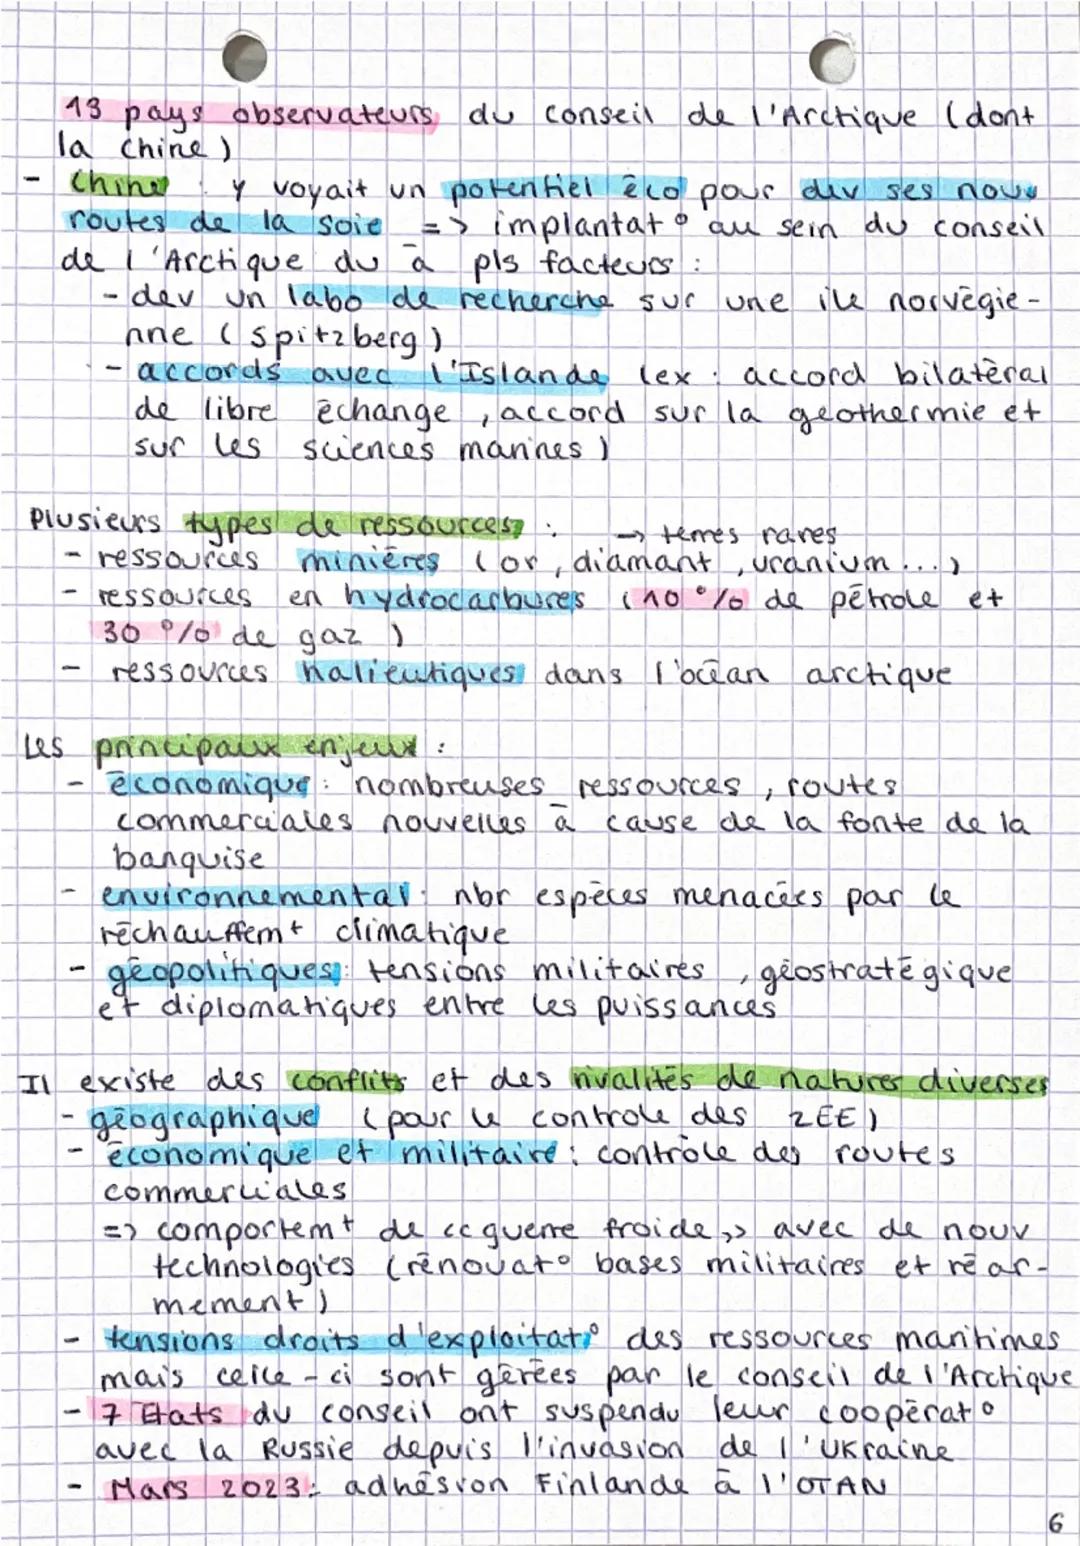 13 pays observateurs du conseil de l'Arctique (dont
la Chine)
- Chine : y voyait un potentiel éco pour dev ses nouv
routes de la soie => implantat° au sein du conseil
de l'Arctique du à pls facteurs :
- dev un labo de recherche sur une ile norvégie-
nne (Spitzberg)
- accords avec l'Islande (ex : accord bilatéral
de libre échange, accord sur la géothermie et
sur les sciences marines)
Plusieurs types de ressources :
→ terres rares
- ressources minières (or, diamant, uranium...)
- ressources en hydrocarbures (10 % de pétrole et
30 % de gaz)
- ressources halieutiques dans l'océan arctique
Les principaux enjeux :
- économique : nombreuses ressources, routes
commerciales nouvelles à cause de la fonte de la
banquise
- environnemental : nbr espèces menacées par le
réchauffemt climatique
- géopolitiques : tensions militaires, géostratégique
et diplomatiques entre les puissances
Il existe des conflits et des rivalités de natures diverses
- géographique (pour le controle des ZEE)
- économique et militaire : contrôle des routes
commerciales
=> comportemt de << guerre froide >> avec de nouv
technologies (rénovat° bases militaires et réar-
mement)
- tensions droits d'exploitat° des ressources maritimes
mais celle-ci sont gérées par le conseil de l'Arctique
- 7 Etats du conseil ont suspendu leur coopérat°
avec la Russie depuis l'invasion de l'Ukraine
- Mars 2023 : adhésion Finlande à l'OTAN
6